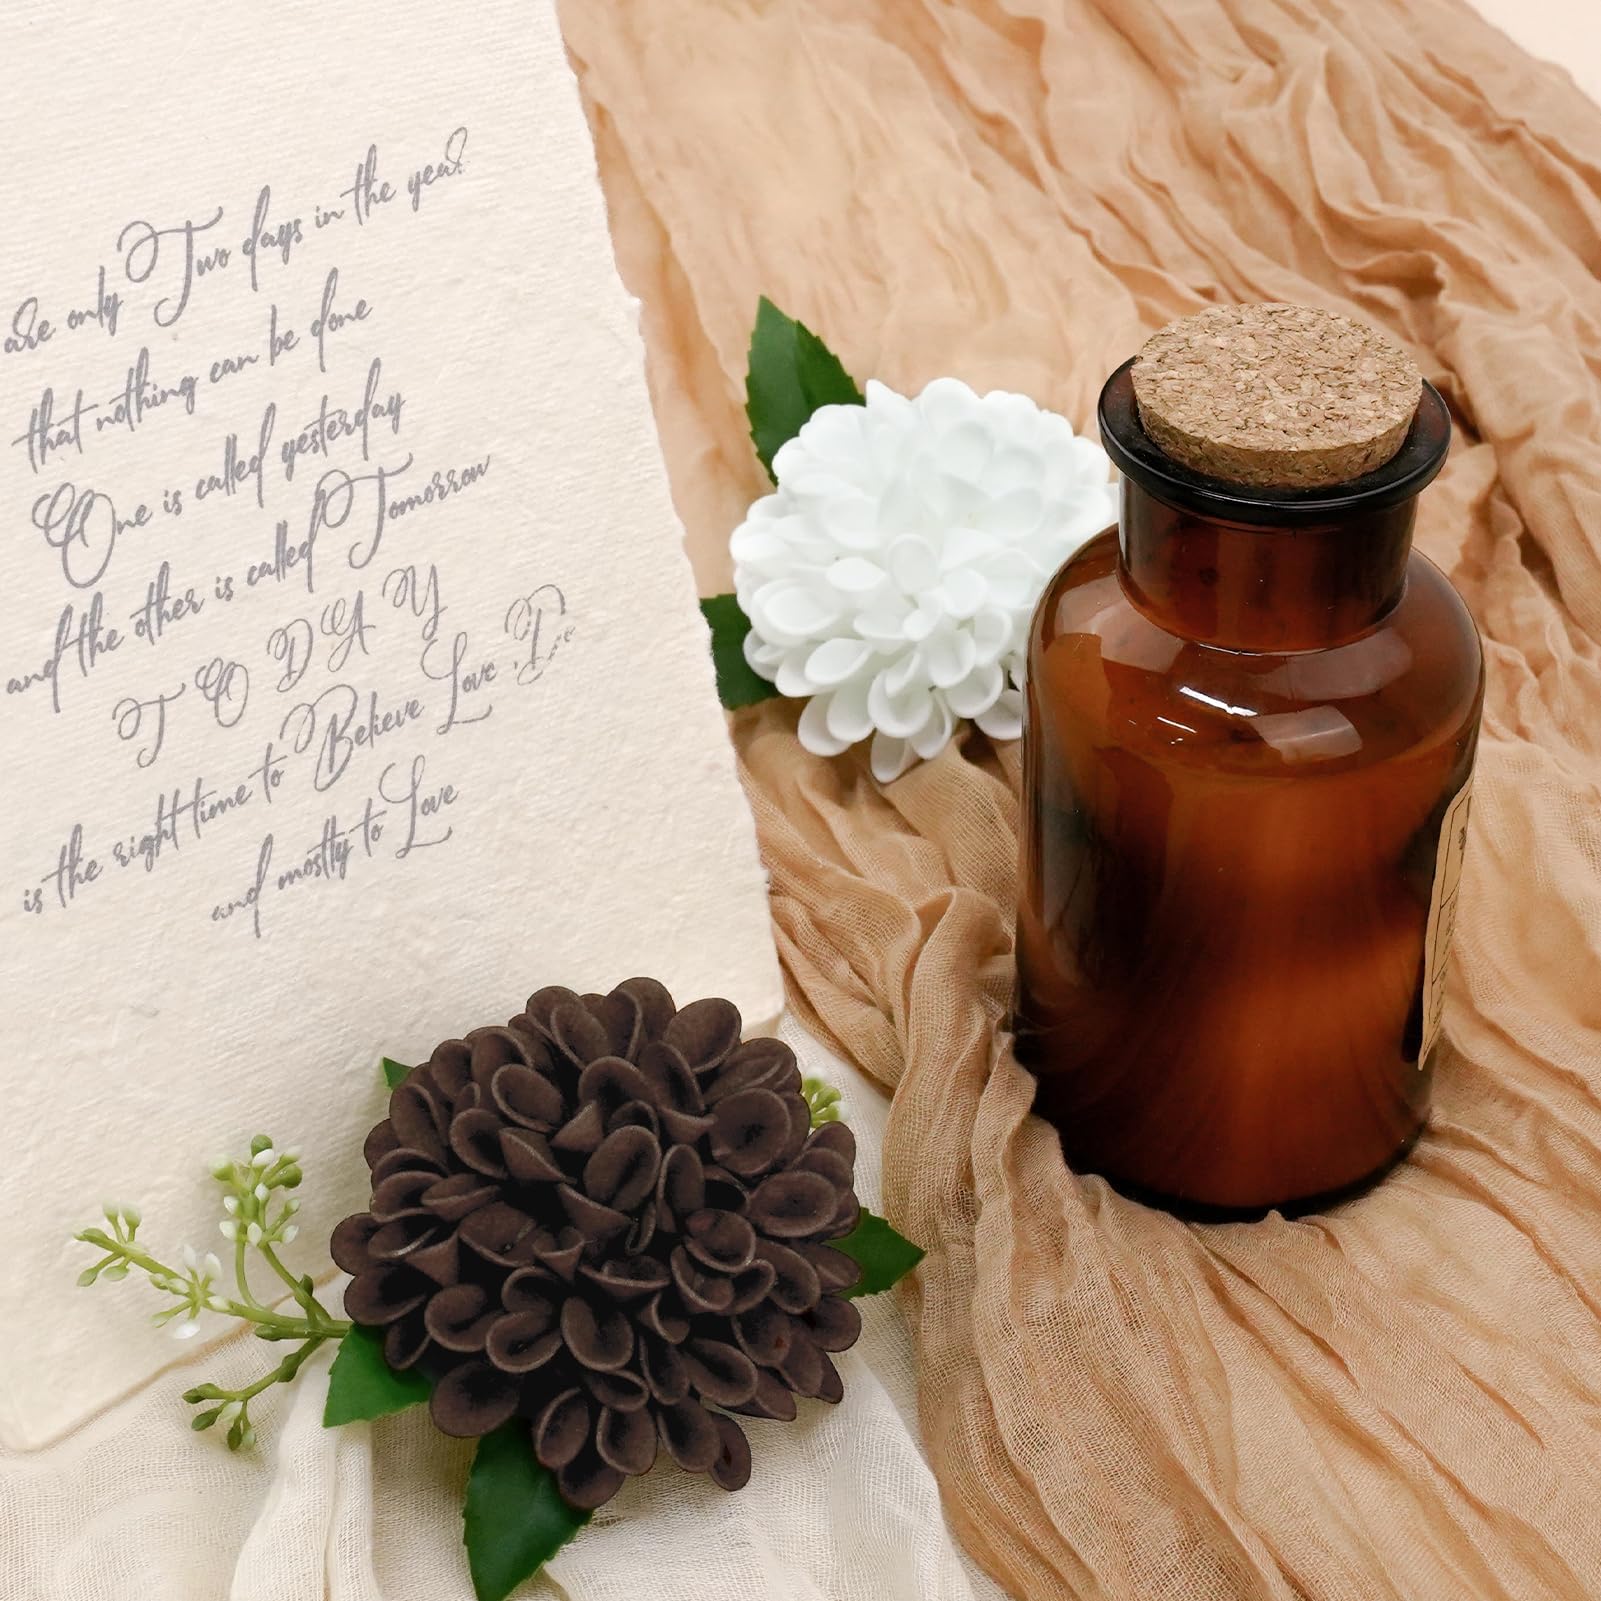 are only Two days in the year
that nothing can be done
One is called yesterday
and the other is called Tomorrow
TODAY
is the right time to Believe Love Do
and mostly to Love